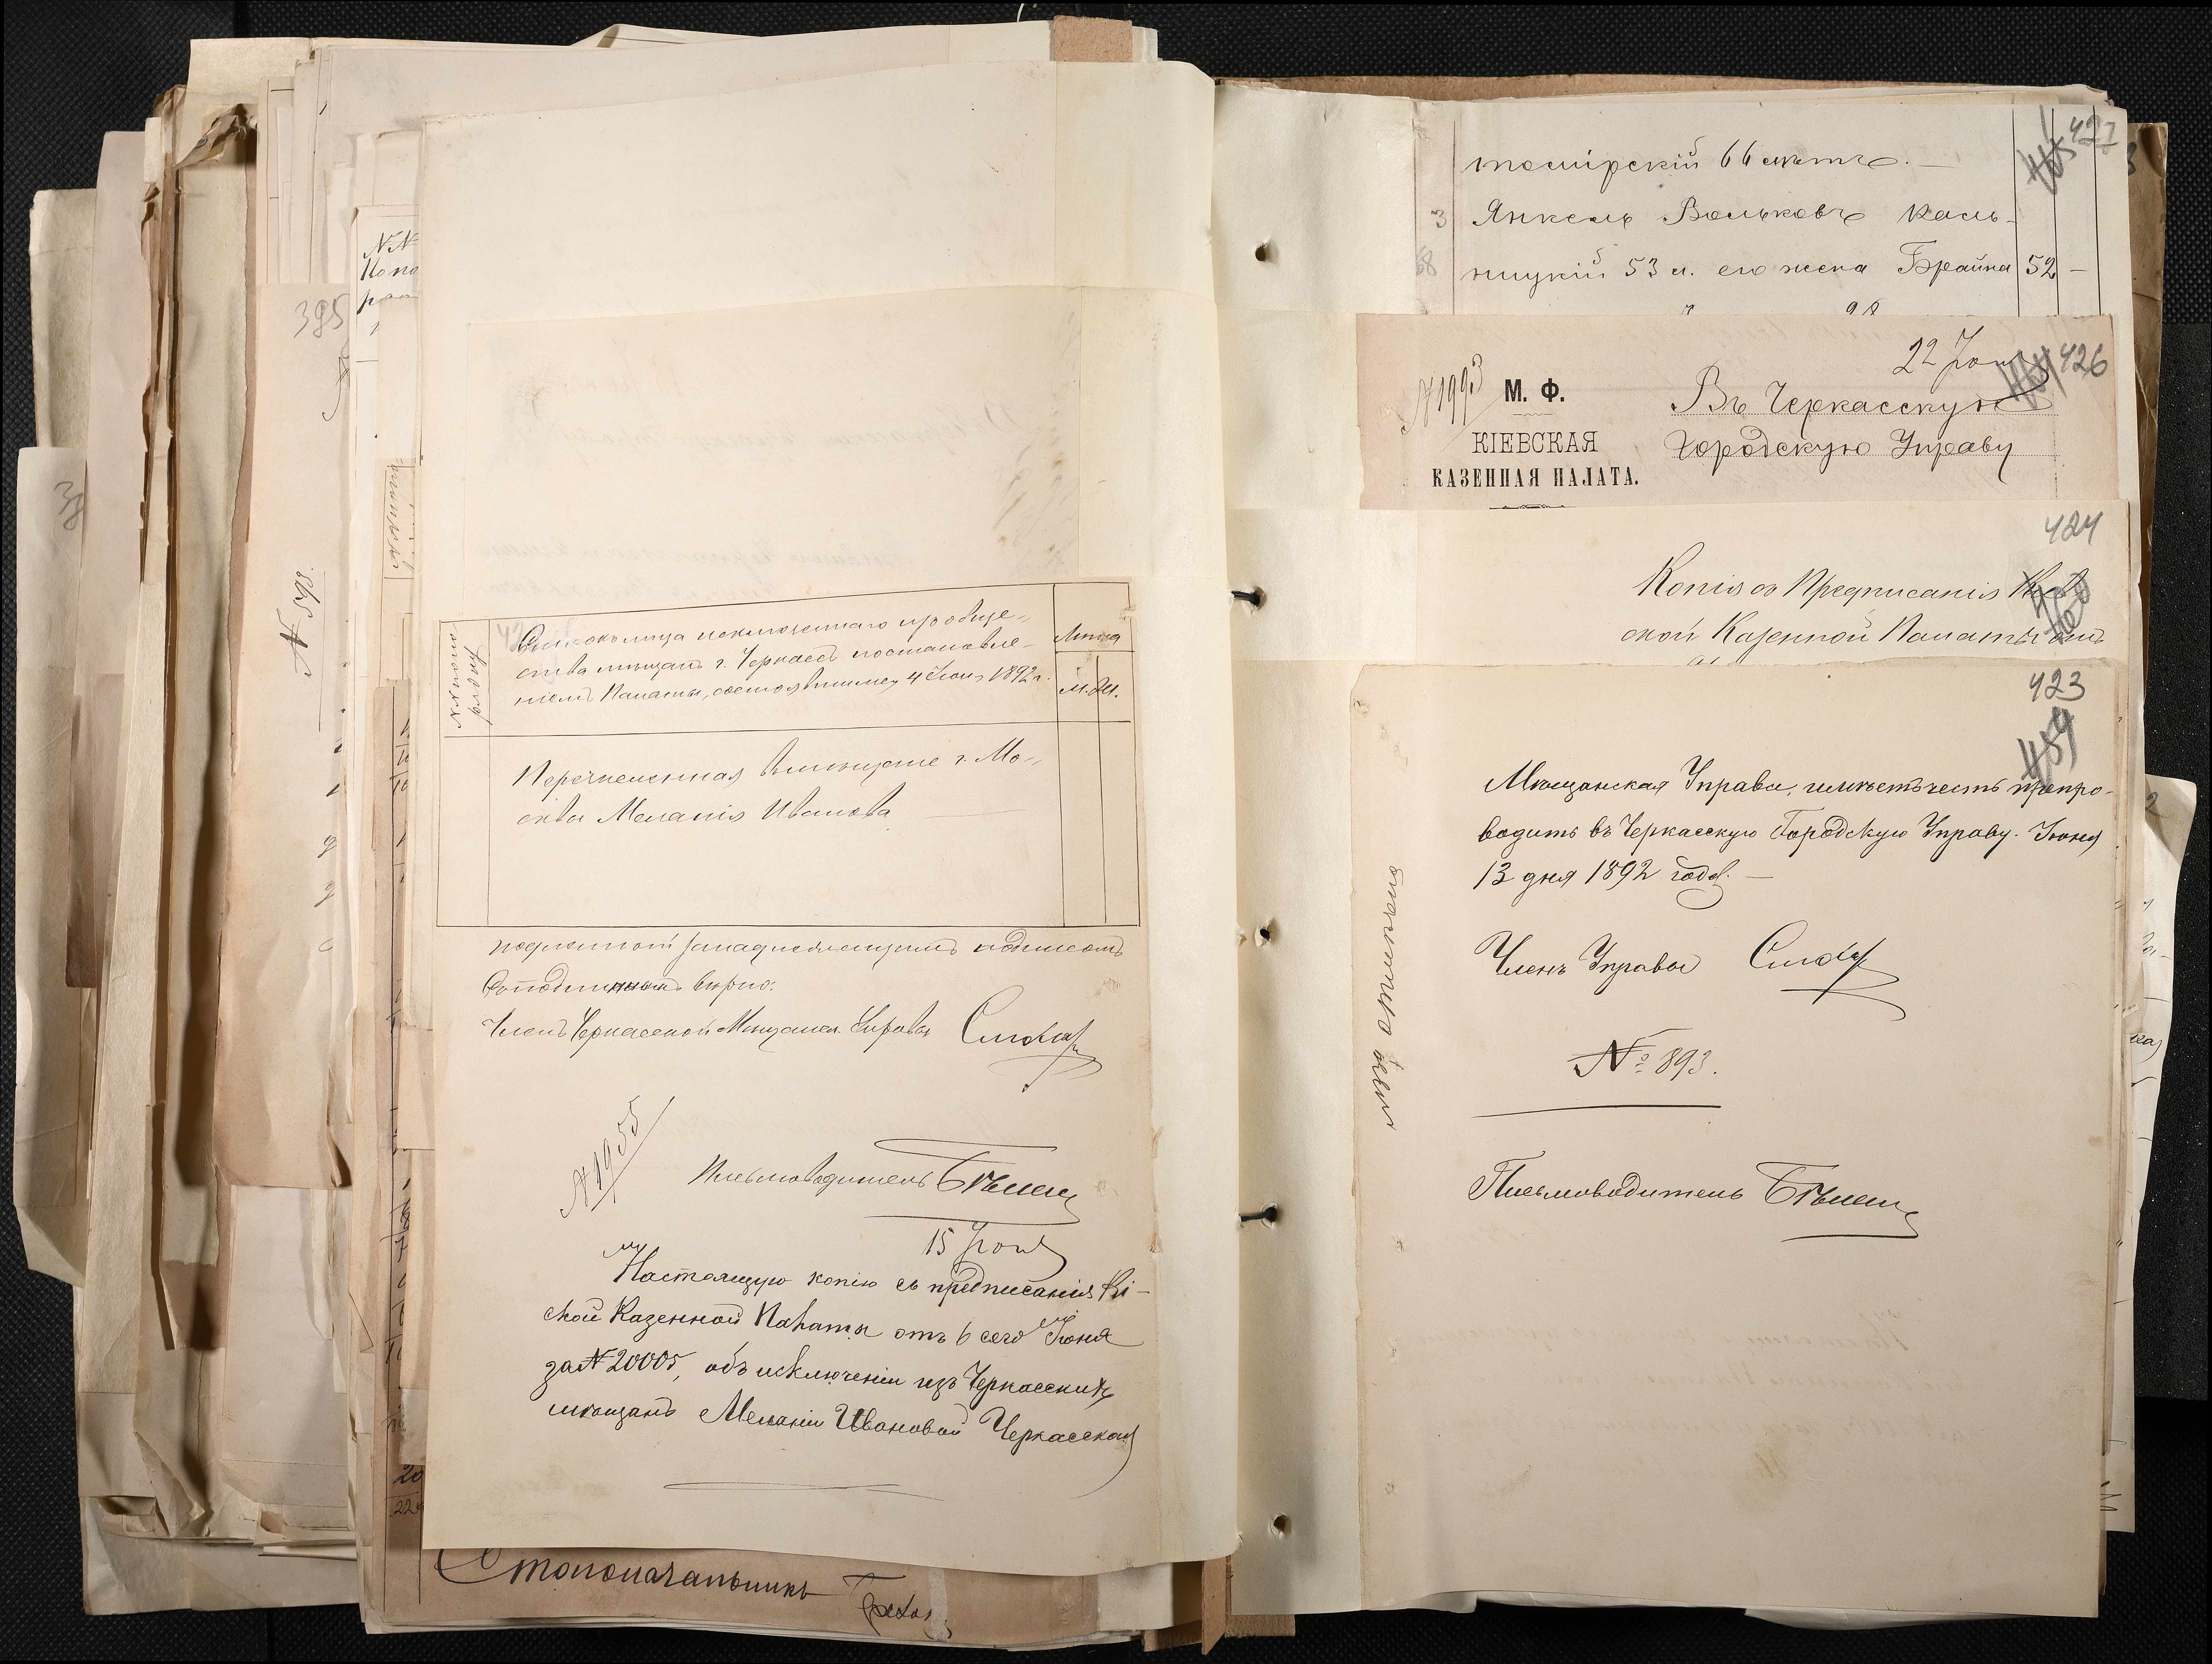 №№
по по-
рядку
Списокъ лица исключеннаго изъ обще-
ства мѣщанъ г. Черкассъ постановле-
ніемъ Палаты, состоявшимся 4 Іюня 1892 г.
Лѣта
М. Ж.
Перечисленная въ мѣщане г. Мо-
сквы Меланія Иванова
подлинной за надлежащимъ подписомъ
Съ подлиннымъ вѣрно:
Членъ Черкасской Мѣщанск. Управы
№ 1955
Письмоводитель
15 Іюня
Настоящую копію съ предписанія Кі-
ской Казенной Палаты отъ 6 сего Іюня
за № 20005, объ исключеніи изъ Черкасскихъ
мѣщанъ Меланіи Ивановой Черкасская
Столоначальникъ
395
№ 395
20
22
427
томірскій 66 лѣтъ. —
3 Янкель Вольковъ Каль-
ницкій 53 л. его жена Брайна 52 —
22 Іюня
426
№ 1993
М. Ф.
КІЕВСКАЯ
КАЗЕННАЯ ПАЛАТА.
Въ Черкасскую
Городскую Управу
424
Копія съ Предписанія Кіев
ской Казенной Палаты отъ
423
459
Мѣщанская Управа, имѣетъ честь препро-
водить въ Черкасскую Городскую Управу. Іюня
13 дня 1892 года. —
Членъ Управы
№ 893.
Письмоводитель